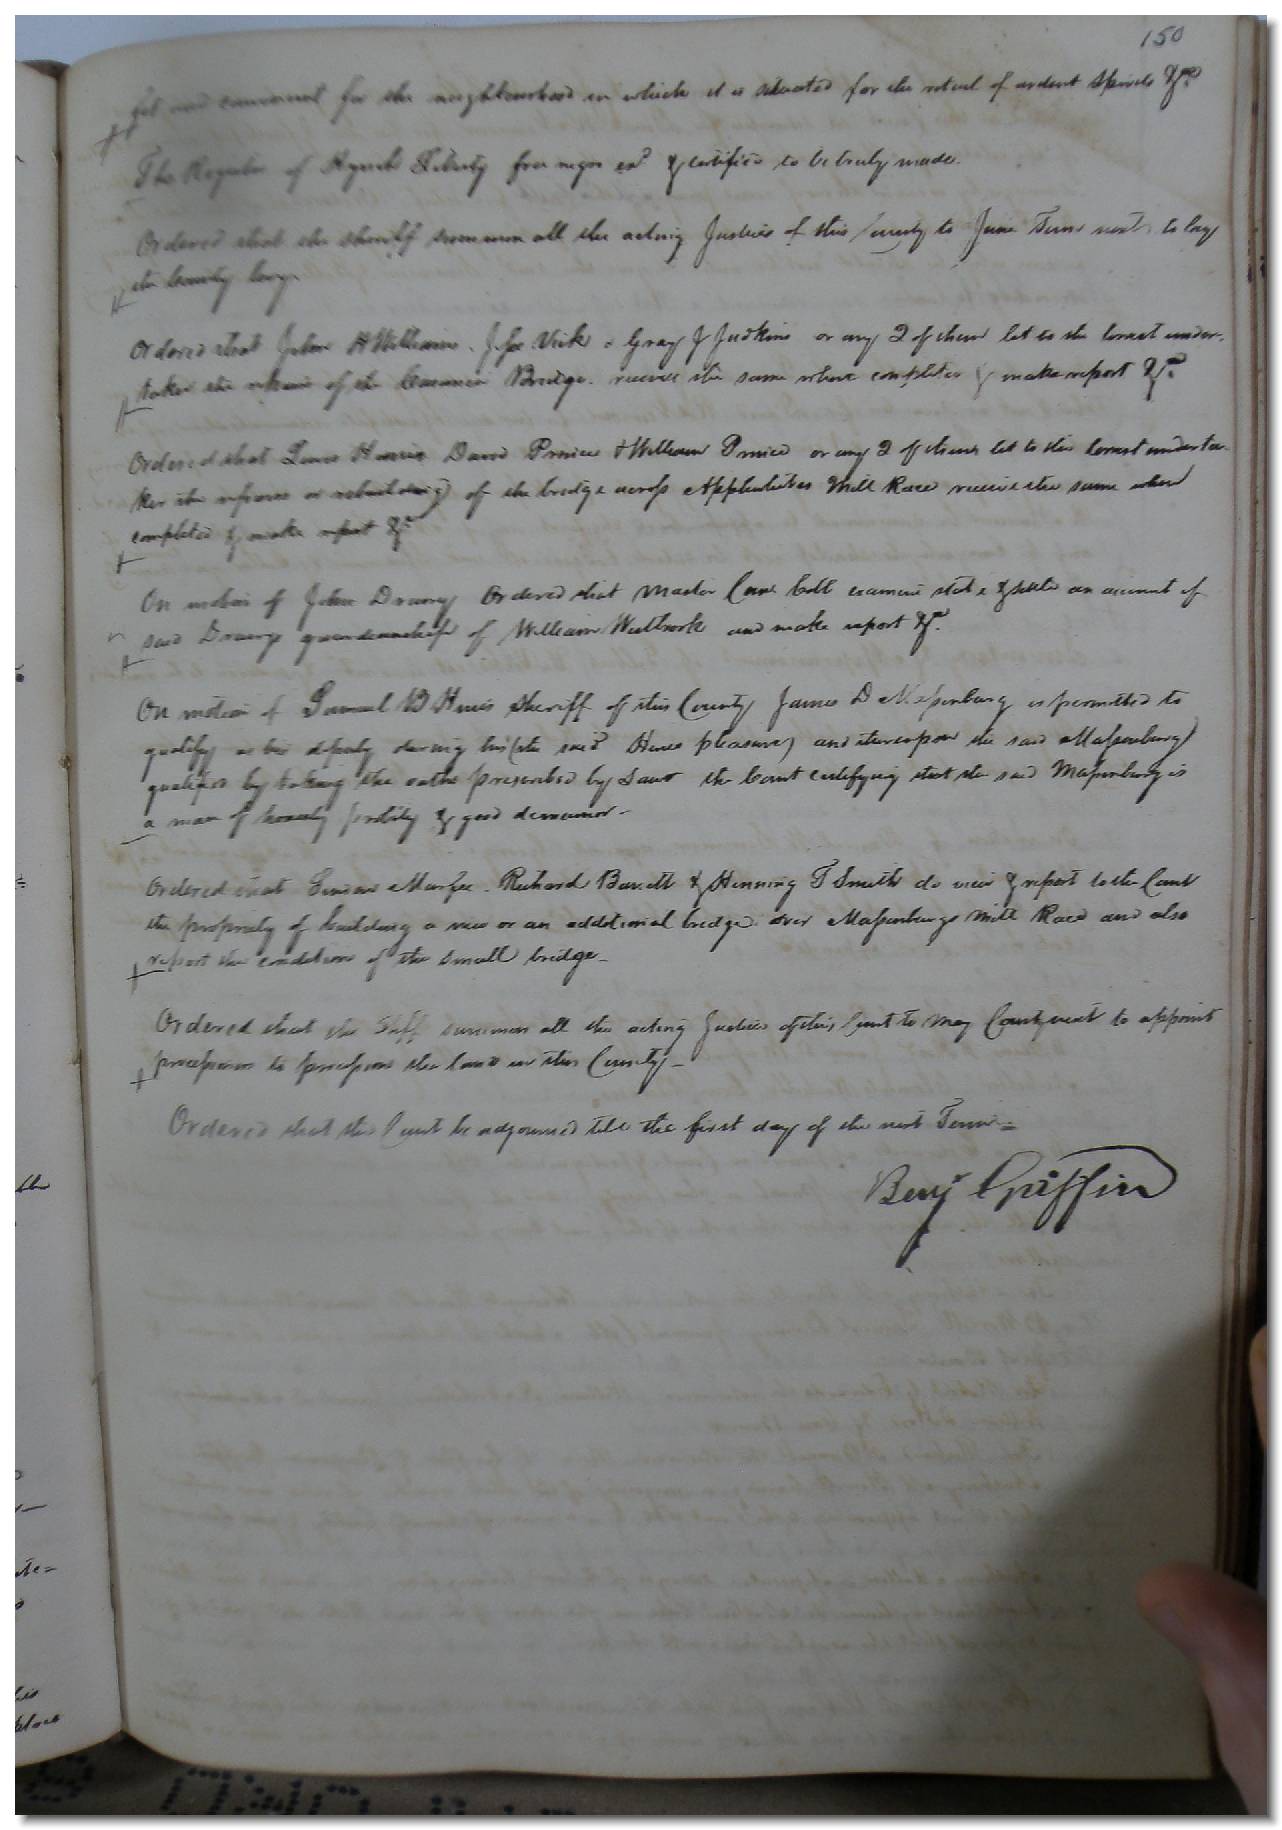 150
fit and convenient for the neighbourhood in which it is situated for the retail of ardent spirits &c
The Register of Liberty free negro exd & certified to be truly made.
Ordered that the sheriff summon all the acting Justices of this County to June Term next, to lay
the County levy
Ordered that John H Williams, Vick & Gray J Judkins or any 2 of them let to the lowest under-
taker the repairs of the Bridge. receive the same when completed & make report &c
Ordered that Harris David & William or any 2 of them let to the lowest underta-
ker the repairs or rebuilding of the bridge across Mill Race receive the same when
completed & make report &c
On motion of John Drewry Ordered that Master Com Cobb examine state & settle an account of
said Drewrys guardianship of William Westbrook and make report &c.
On motion of Samuel B Hines Sheriff of this County James D Massenburg is permitted to
qualify as his deputy during his (the said Hines pleasure) and thereupon the said Massenburg
qualified by taking the oaths prescribed by Law the Court certifying that the said Massenburg is
a man of honesty probity & good demeanor-
Ordered that Richard Barrett & Henning T Smith do view & report to the Court
the propriety of building a new or an additional bridge over Massenburgs Mill Race and also
report the condition of the small bridge_
Ordered that the Shff summon all the acting Justices of this Court to May Court next to appoint
processioners to procession the lands in this County_
Ordered that the Court be adjourned till the first day of the next Term=
Benjr Griffin
ate=
place